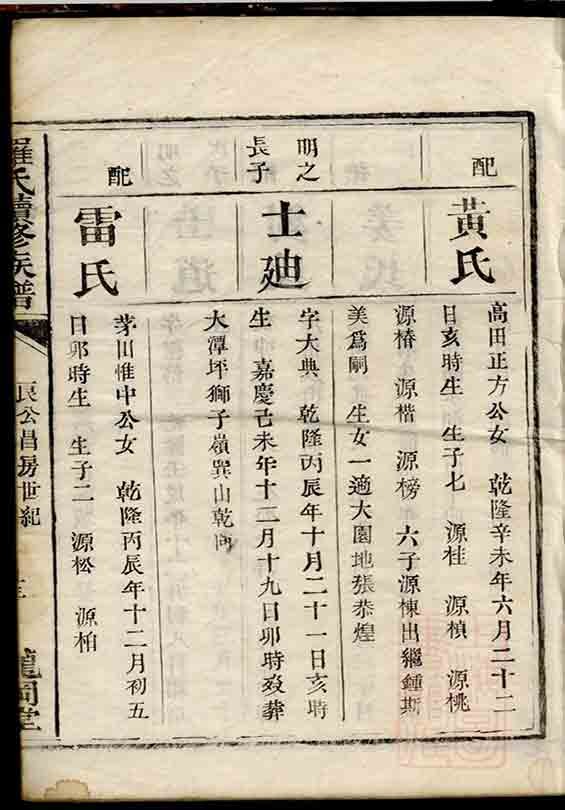 配
黃氏
高田正方公女 乾隆辛未年六月二十二
日亥時生 生子七 源桂 源楨 源桃
源椿 源楷 源榜 六子源棟出繼鍾斯
美爲嗣 生女一適大園地張恭煌
明之
長子
士廸
字大典 乾隆丙辰年十月二十一日亥時
生 嘉慶己未年十二月十九日卯時歿葬
大潭坪獅子嶺巽山乾向
配
雷氏
茅田惟中公女 乾隆丙辰年十二月初五
日卯時生 生子二 源松 源柏
羅氏續修族譜
良公昌房世紀